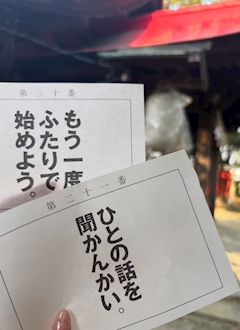 第三十番
もう一度
ふたりで
始めよう。
第二十一番
ひとの話を
聞かんかい。